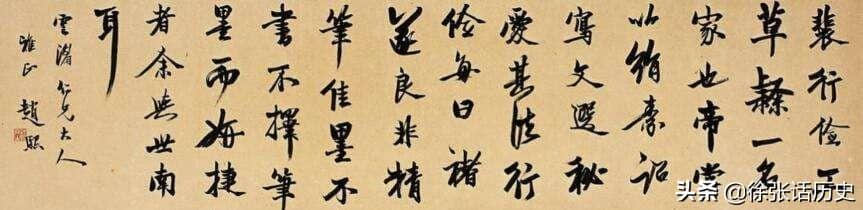 裴行儉工
草隸一名
家也帝嘗
以絹素詔
寫文選秘
愛其法行
儉每曰褚
遂良非精
筆佳墨不
書不擇筆
墨而妍捷
者余與世南
耳
雲渚仁兄大人
雅正 趙熙
头条 @徐张话历史